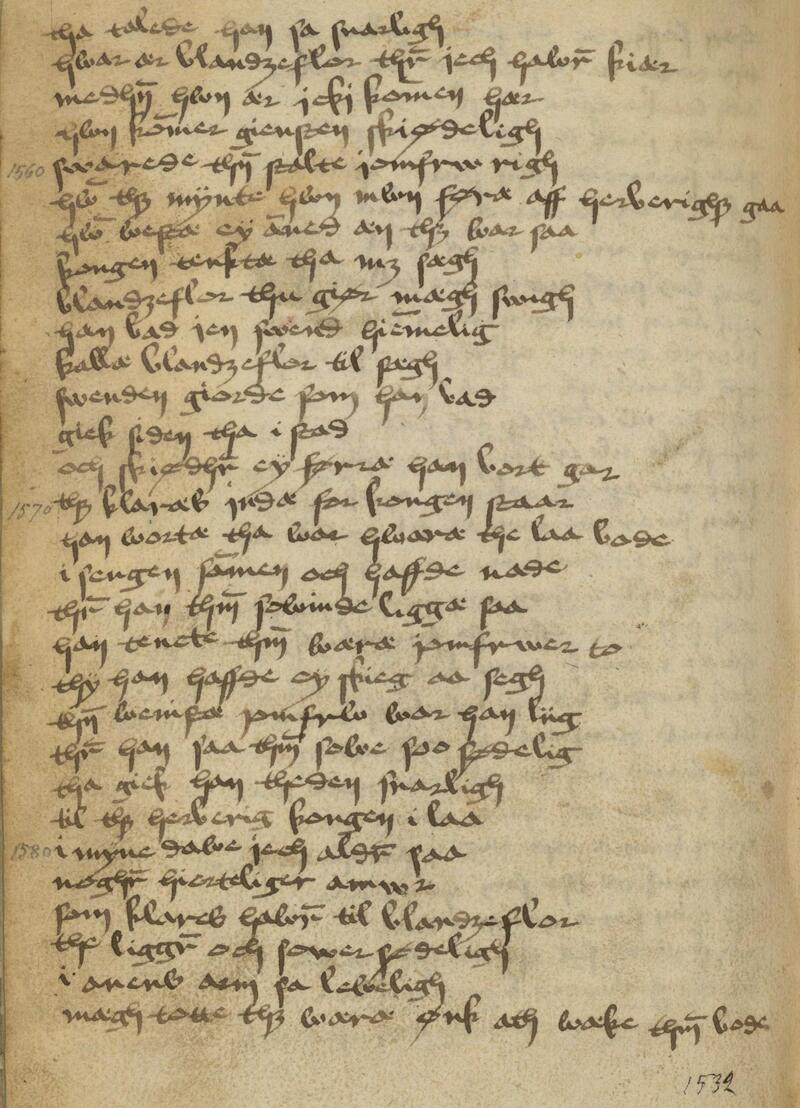 tha talede han sa snarligh
hwar ær blandzeflor thr̄ jech hawr̄ kiær
medhn̄ hwn ær jcki kom̄en hær
hwn kom̄er giensten skiødeligh
1560 swarede thn̄ stalte jomfrw righ
hwo thz mÿnte hwn mwn føræ aff herberighz gaa
hwo westæ ey an̄ed æn thz war saa
kongen tenktæ tha mz sægh
blandzeflor thu giør mægh swigh
han bad jen swend hiem̄elig
kallæ blandzeflor til sægh
swenden giorde som han bad
giek siden tha i stad
och skiødhr̄ ey førræ han bort gar
1570 thz klares jndæ for kongen staar
han wortæ tha war hwaræ the laa bode
i sengen sam̄en och haffde nade
thr̄ han thm̄ sowinde liggæ saa
han tencte thm̄ wæræ jomfrwer to
thy han haffde ey skieg aa segh
thn̄ wenistæ jomfrw war han liig
thr̄ han saa thm̄ sowe soo sødelig
tha giek han theden snarligh
til thz herberig kongen i laa
1580 i myne dawe jech aldr̄ saa
noghr̄ hierteliger amwr
som klares hawr̄ til blandzeflor
the liggr̄ och sower sødeligh
i anens arm sa leweligh
mægh totte thz wæræ ønk ath wæke thm̄ bode
1532